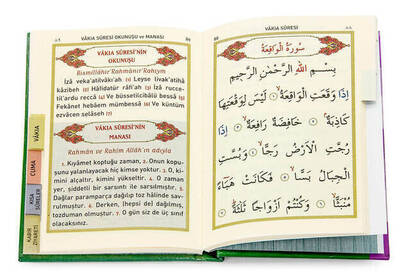 ٨٩ VÂKIA SÛRESİ OKUNUŞU ve MANASI 89
VÂKIA SÛRESİ'NİN
OKUNUŞU
Bismillâhir'Rahmânir'Rahıym
İzâ veka'atilvâkı'ah (1) Leyse livak'atihâ
kâzibeh (2) Hâfidatür râfi'ah (3) İzâ rucce-
til'ardu reccâ (4) Ve büssetilcibâlü bessâ (5)
Fekânet hebâem mübbessâ (6) Ve küntüm
ezvâcen selâseh (7)
VÂKIA SÛRESİ'NİN
MANASI
Rahmân ve Rahîm Allâh'ın adıyla
1. Kıyâmet koptuğu zaman, 2. Onun kopu-
şunu yalanlayacak hiç kimse yoktur. 3. O, ki-
mini alçaltır, kimini yükseltir. 4. O zaman
yer, şiddetli bir sarsıntı ile sarsılmıştır. 5.
Dağlar paramparça dağılıp toz hâlinde sav-
rulmuştur. 6. Derken, (hepsi de) dağılmış,
tozduman olmuştur. 7. O gün siz de üç sınıf
olacaksınız.
VÂKIA
CUMA
KISA
SÛRELER
KABİR
ZİYARETİ
VÂKIA SÛRESİ
سُورَةُ الْوَاقِعَةِ
بِسْمِ اللّٰهِ الرَّحْمٰنِ الرَّحِيمِ
اِذَا وَقَعَتِ الْوَاقِعَةُ ۝ لَيْسَ لِوَقْعَتِهَا
كَاذِبَةٌ ۝ خَافِضَةٌ رَافِعَةٌ ۝ اِذَا
رُجَّتِ الْاَرْضُ رَجًّا ۝ وَبُسَّتِ
الْجِبَالُ بَسًّا ۝ فَكَانَتْ هَبَاءً
مُنْبَثًّا ۝ وَكُنْتُمْ اَزْوَاجًا ثَلٰثَةً ۝